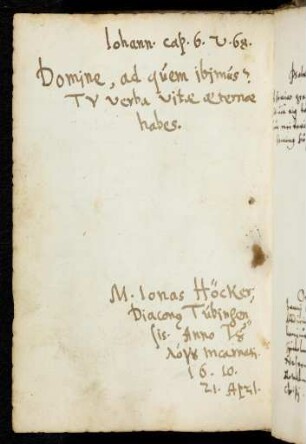 Iohann. cap. 6. v. 68.
Domine, ad quem ibimus?
TV verba vitæ æternæ
habes.
M. Ionas Höcker,
Diacong Tübingen
sis. Anno
λόγȣ incarnati.
1610.
21. April.